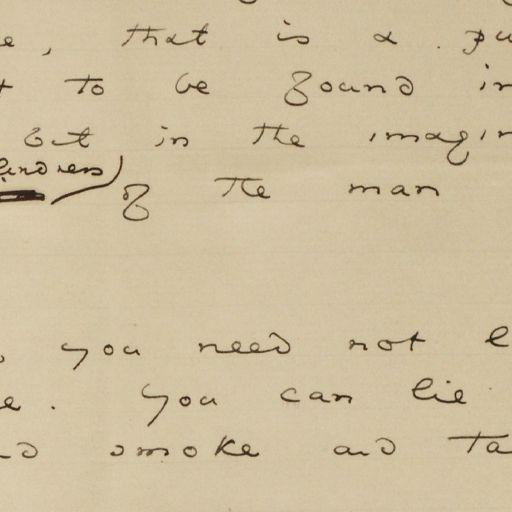 e, that is a pu
t to be found in
but in the imagin
kindness
of the man
you need not l
e. You can lie
nd smoke and ta